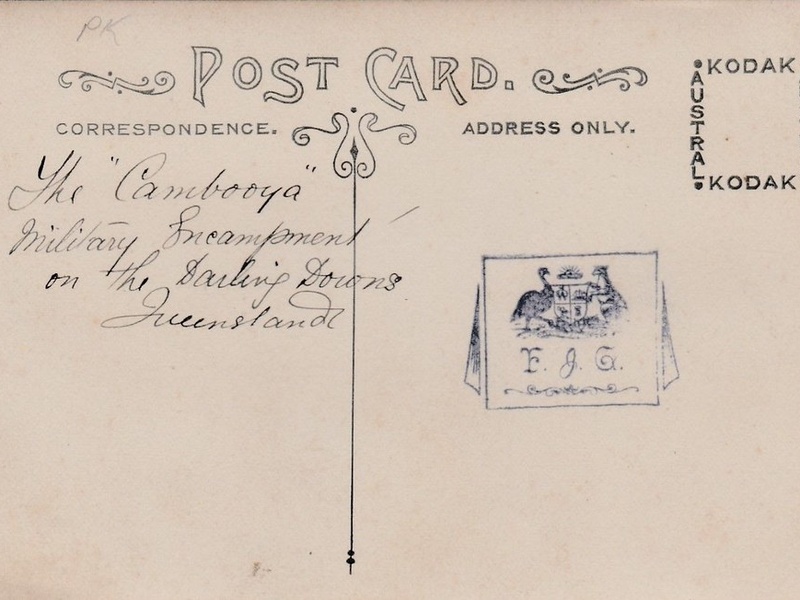 PK
POST CARD.
CORRESPONDENCE.
ADDRESS ONLY.
KODAK
AUSTRAL
KODAK
The "Cambooya"
Military Encampment
on the Darling Downs
Queensland
F. J. G.